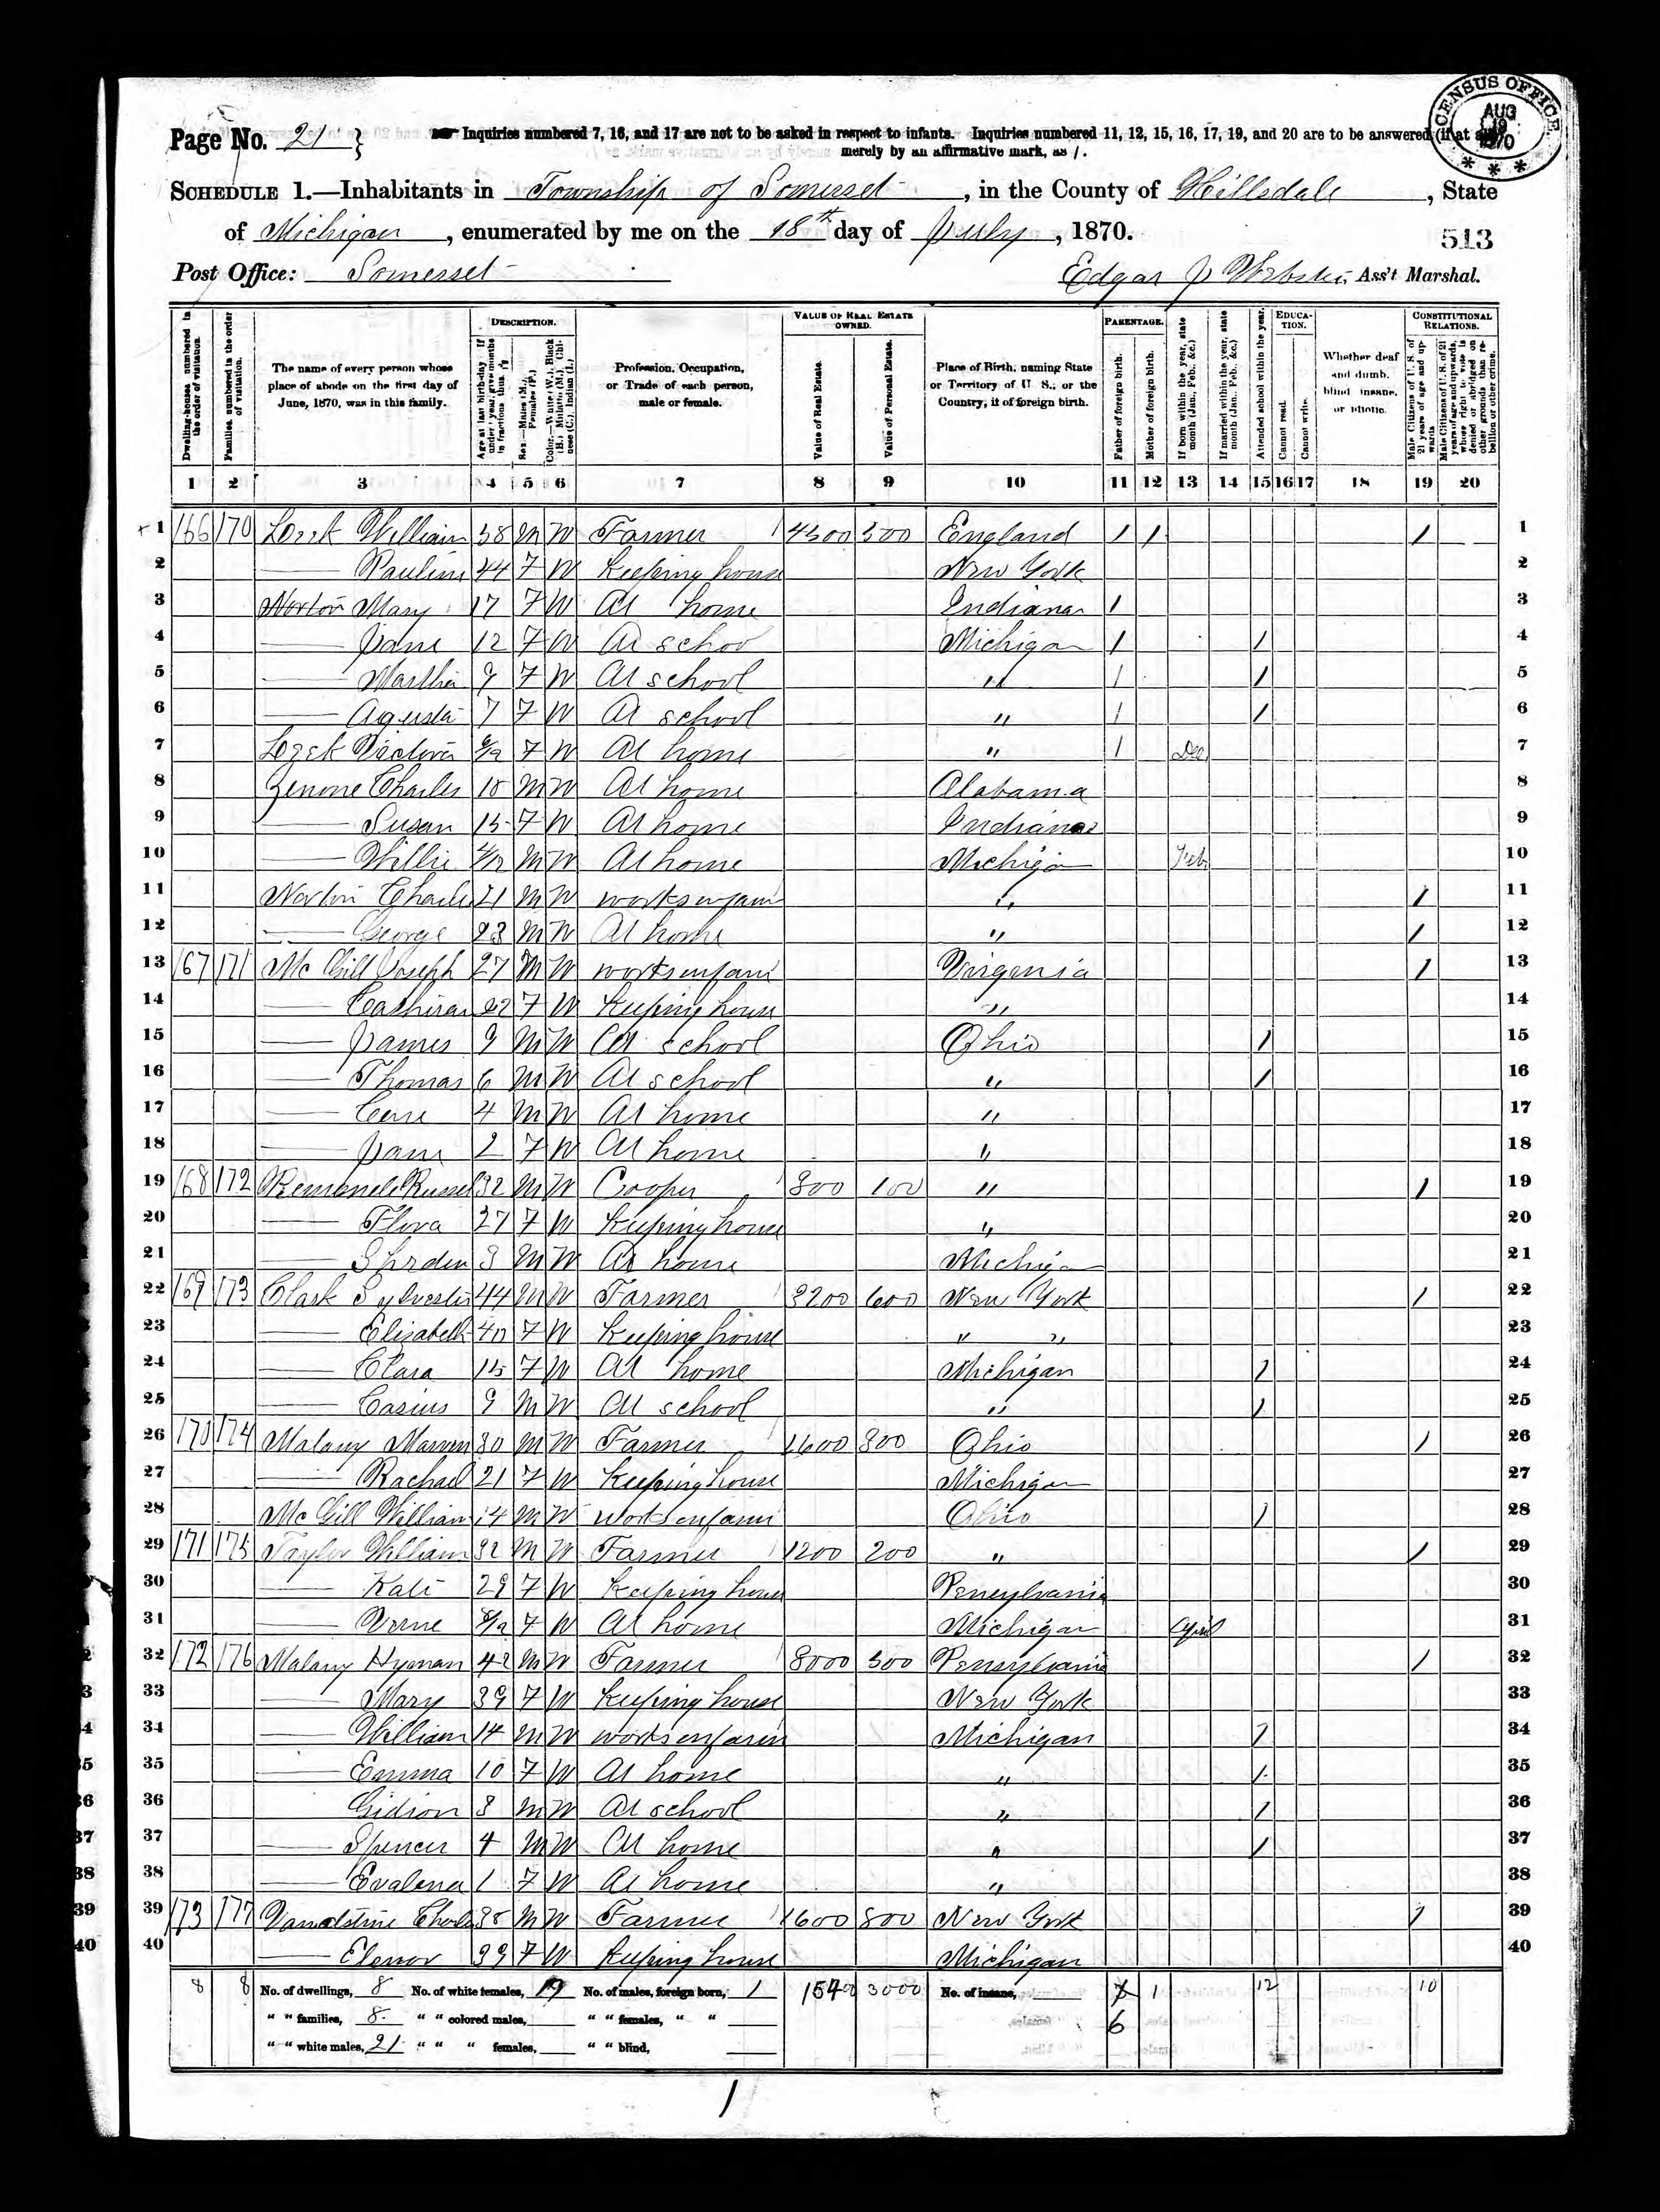 CENSUS OFFICE AUG 19 1870
Page No. 21
Inquiries numbered 7, 16, and 17 are not to be asked in respect to infants. Inquiries numbered 11, 12, 15, 16, 17, 19, and 20 are to be answered (if at all)
merely by an affirmative mark, as /.
SCHEDULE 1.—Inhabitants in Township of Somerset, in the County of Hillsdale, State
of Michigan, enumerated by me on the 18th day of July, 1870.
513
Post Office: Somerset Edgar J Webster, Ass't Marshal.
Dwelling-houses, numbered in the order of visitation.
Families, numbered in the order of visitation.
The name of every person whose place of abode on the first day of June, 1870, was in this family.
DESCRIPTION.
Profession, Occupation, or Trade of each person, male or female.
VALUE OF REAL ESTATE OWNED.
Value of Real Estate.
Value of Personal Estate.
Place of Birth, naming State or Territory of U. S.; or the Country, if of foreign birth.
PARENTAGE.
Father of foreign birth.
Mother of foreign birth.
If born within the year, state month (Jan., Feb., &c.)
If married within the year, state month (Jan., Feb., &c.)
Attended school within the year.
EDUCATION.
Cannot read.
Cannot write.
Whether deaf and dumb, blind, insane, or idiotic.
CONSTITUTIONAL RELATIONS.
1 2 3 4 5 6 7 8 9 10 11 12 13 14 15 16 17 18 19 20
1 166 170 William 38 M W Farmer 4300 England / / / 1
2 —— 44 F W Keeping house New York 2
3 Norton Mary 17 F W At home Indiana / 3
4 —— Jane 12 F W At school Michigan / / 4
5 —— Martha 9 F W At school " / / 5
6 —— Agusta 7 F W At school " / / 6
7 F W At home " / Dec 7
8 Charles M W At home Alabama 8
9 —— Susan 15 F W At home Indiana 9
10 —— Willie M W At home Michigan Feb 10
11 Norton 21 M W works on farm " / 11
12 —— George 23 M W At home " / 12
13 167 171 McGill Joseph 27 M W works on farm Virgenia / 13
14 —— F W Keeping house " 14
15 —— James 9 M W At school Ohio / 15
16 —— Thomas 6 M W At school " / 16
17 —— 4 M W At home " 17
18 —— Jane 2 F W At home " 18
19 168 172 Russel 32 M W Cooper 800 100 " / 19
20 —— Flora 27 F W Keeping house " 20
21 —— M W At home Michigan 21
22 169 173 Clark Sylvester 44 M W Farmer 600 New York / 22
23 —— Elizabeth 40 F W Keeping house " " 23
24 —— Clara 15 F W At home Michigan / 24
25 —— Casius 9 M W At school " / 25
26 170 174 Malany 30 M W Farmer 1600 Ohio / 26
27 —— Rachael 21 F W Keeping house Michigan 27
28 McGill William 14 M W works on farm Ohio / 28
29 171 175 Taylor William 32 M W Farmer 1200 200 " / 29
30 —— Kate 29 F W Keeping house Pensylvania 30
31 —— Verne F W At home Michigan April 31
32 172 176 Malany Hyman 42 M W Farmer Pensylvania / 32
33 —— Mary 39 F W Keeping house New York 33
34 —— William 14 M W works on farm Michigan / 34
35 —— Emma 10 F W At home " / 35
36 —— Gidion 8 M W At school " / 36
37 —— Spencer 4 M W At home " / 37
38 —— Evalena 1 F W At home " 38
39 173 177 M W Farmer 1600 800 New York / 39
40 —— Elenor F W Keeping house Michigan 40
8 8 No. of dwellings, 8 No. of white females, 19 No. of males, foreign born, 1 3000 No. of insane, 1 12 10
" " families, 8 " " colored males, " " females, " " 6
" " white males, 21 " " " females, " " blind,